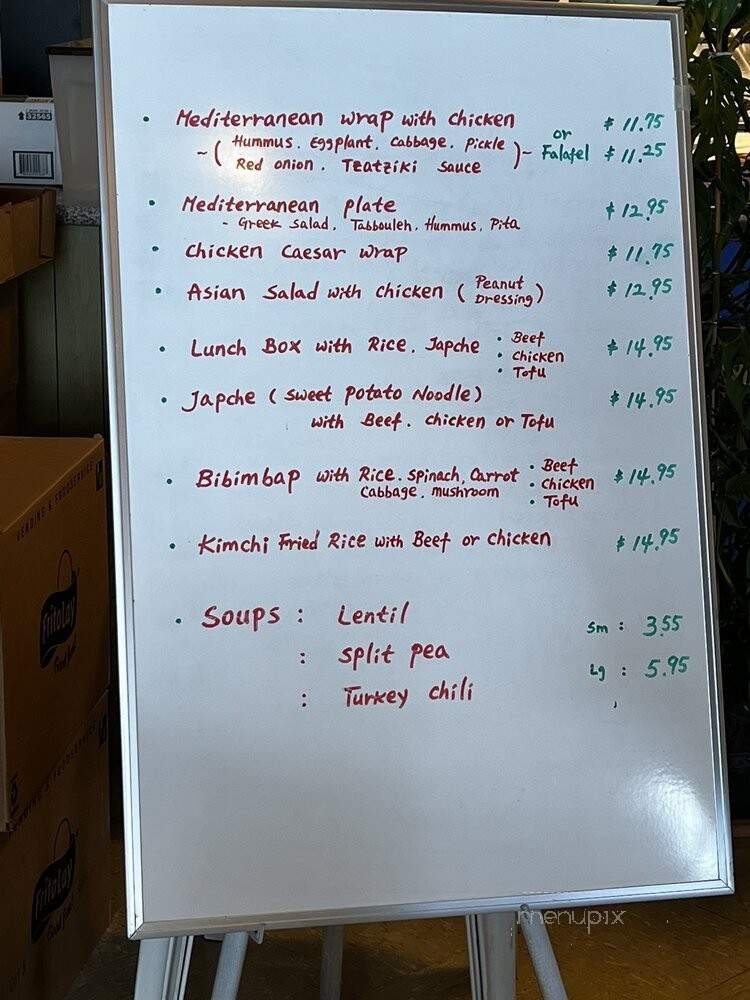 • Mediterranean wrap with chicken $ 11.75
~( Hummus. Eggplant. Cabbage. Pickle )~ or
Red onion. Tzatziki sauce Falafel $ 11.25
• Mediterranean plate $ 12.95
- Greek salad. Tabbouleh. Hummus. Pita
• Chicken Caesar wrap $ 11.75
• Asian Salad with chicken ( Peanut $ 12.95
Dressing )
• Lunch Box with Rice. Japche • Beef $ 14.95
• Chicken
• Tofu
• Japche ( Sweet Potato Noodle) $ 14.95
with Beef. chicken or Tofu
• Bibimbap with Rice. spinach, Carrot • Beef $ 14.95
Cabbage. mushroom • Chicken
• Tofu
• Kimchi Fried Rice with Beef or chicken $ 14.95
• Soups : Lentil sm : 3.55
: split pea Lg : 5.95
: Turkey chili
32565
FritoLay
FritoLay
menupix